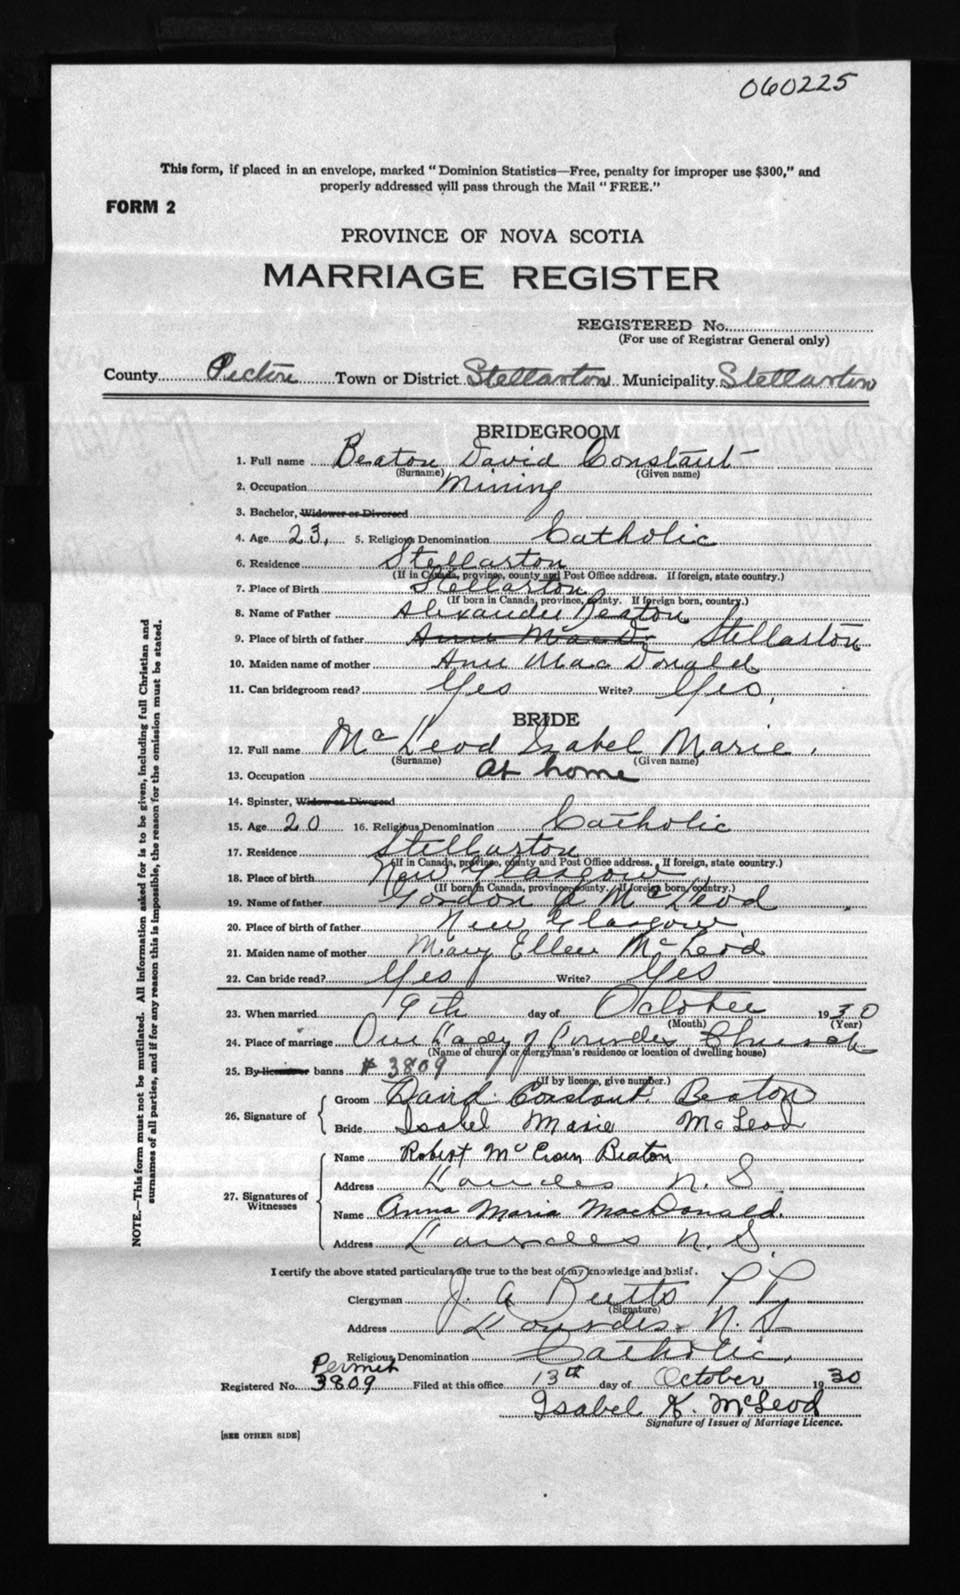 060225
This form, if placed in an envelope, marked "Dominion Statistics—Free, penalty for improper use $300," and
properly addressed will pass through the Mail "FREE."
FORM 2
PROVINCE OF NOVA SCOTIA
MARRIAGE REGISTER
REGISTERED No.
(For use of Registrar General only)
County Pictou Town or District Stellarton Municipality Stellarton
BRIDEGROOM
1. Full name Beaton David Constant
(Surname) (Given name)
2. Occupation Mining
3. Bachelor, Widower or Divorced
4. Age 23, 5. Religious Denomination Catholic
6. Residence Stellarton
(If in Canada, province, county and Post Office address. If foreign, state country.)
7. Place of Birth Stellarton
(If born in Canada, province, county. If foreign born, country.)
8. Name of Father Alexander Beaton
9. Place of birth of father Anne MacD Stellarton
10. Maiden name of mother Ann MacDonald
11. Can bridegroom read? Yes Write? Yes,
BRIDE
12. Full name McLeod Isabel Marie.
(Surname) (Given name)
13. Occupation at home
14. Spinster, Widow or Divorced
15. Age 20 16. Religious Denomination Catholic
17. Residence Stellarton
(If in Canada, province, county and Post Office address. If foreign, state country.)
18. Place of birth New Glasgow
(If born in Canada, province, county. If foreign born, country.)
19. Name of father Gordon A McLeod
20. Place of birth of father New Glasgow
21. Maiden name of mother Mary Ellen McLeod
22. Can bride read? Yes Write? Yes
23. When married 9th day of October 1930
(Month) (Year)
24. Place of marriage Our Lady of Lourdes Church
(Name of church or clergyman's residence or location of dwelling house)
25. By licence or banns # 3809
(If by licence, give number.)
26. Signature of
Groom David Constant Beaton
Bride Isabel Marie McLeod
27. Signatures of Witnesses
Name Robert Beaton
Address Lourdes N.S.
Name Anna Maria MacDonald.
Address Lourdes N.S.
I certify the above stated particulars are true to the best of my knowledge and belief.
Clergyman J. A. Butts P.P.
(Signature)
Address Lourdes N.S
Religious Denomination Catholic,
Permit
Registered No. 3809 Filed at this office 13th day of October 1930
Isabel K. McLeod
Signature of Issuer of Marriage Licence.
[SEE OTHER SIDE]
NOTE.—This form must not be mutilated. All information asked for is to be given, including full Christian and
surnames of all parties, and if for any reason this is impossible, the reason for the omission must be stated.